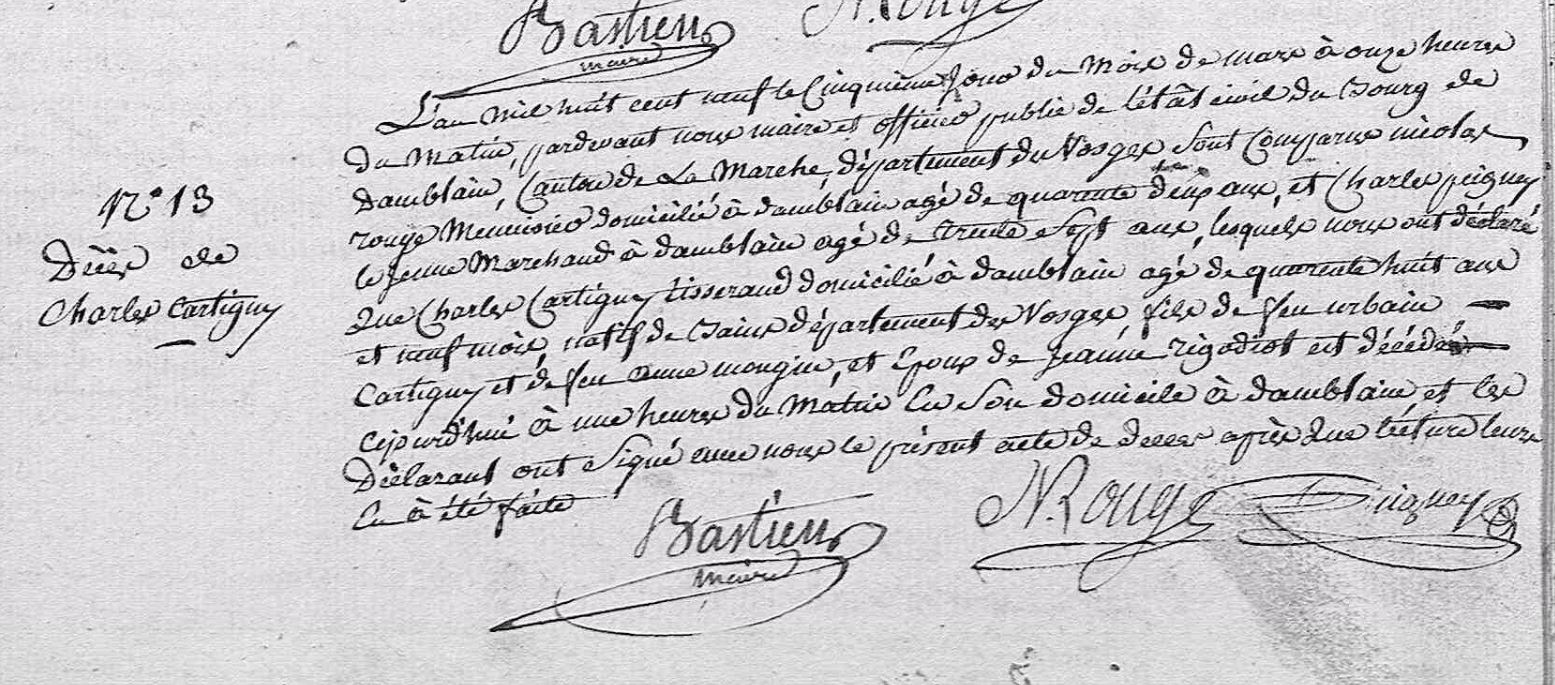 Bastien N. Rouge
maire
L'an mil huit cent neuf le Cinquieme Jour du Mois de mars à onze heures
du Matin, pardevant nous maire et officier public de l'état civil du Bourg de
N.° 13
Damblain, Canton de La Marche, département du Vosges sont Comparus nicolas
rouge Menuisier domicilié à damblain agé de quarente deux ans, et Charles puigney
Décés de
le Jeune Marchand à damblain agé de trente Sept ans, lesquels nous ont déclaré
Charles Cartigny
que Charles Cartigny tisserand domicilié à damblain agé de quarente huit ans
et neuf mois, natif de département des Vosges, fils de feu urbain
Cartigny et de feu anne mongin, et Epoux de Jeanne rigodiot est décédé
cejourd'hui à une heures du Matin En Son domicile à damblain et les
Déclarant ont signé avec nous le présent acte de deces après que lécture leurs
En à été faite
Bastien N. Rouge Puigney
maire